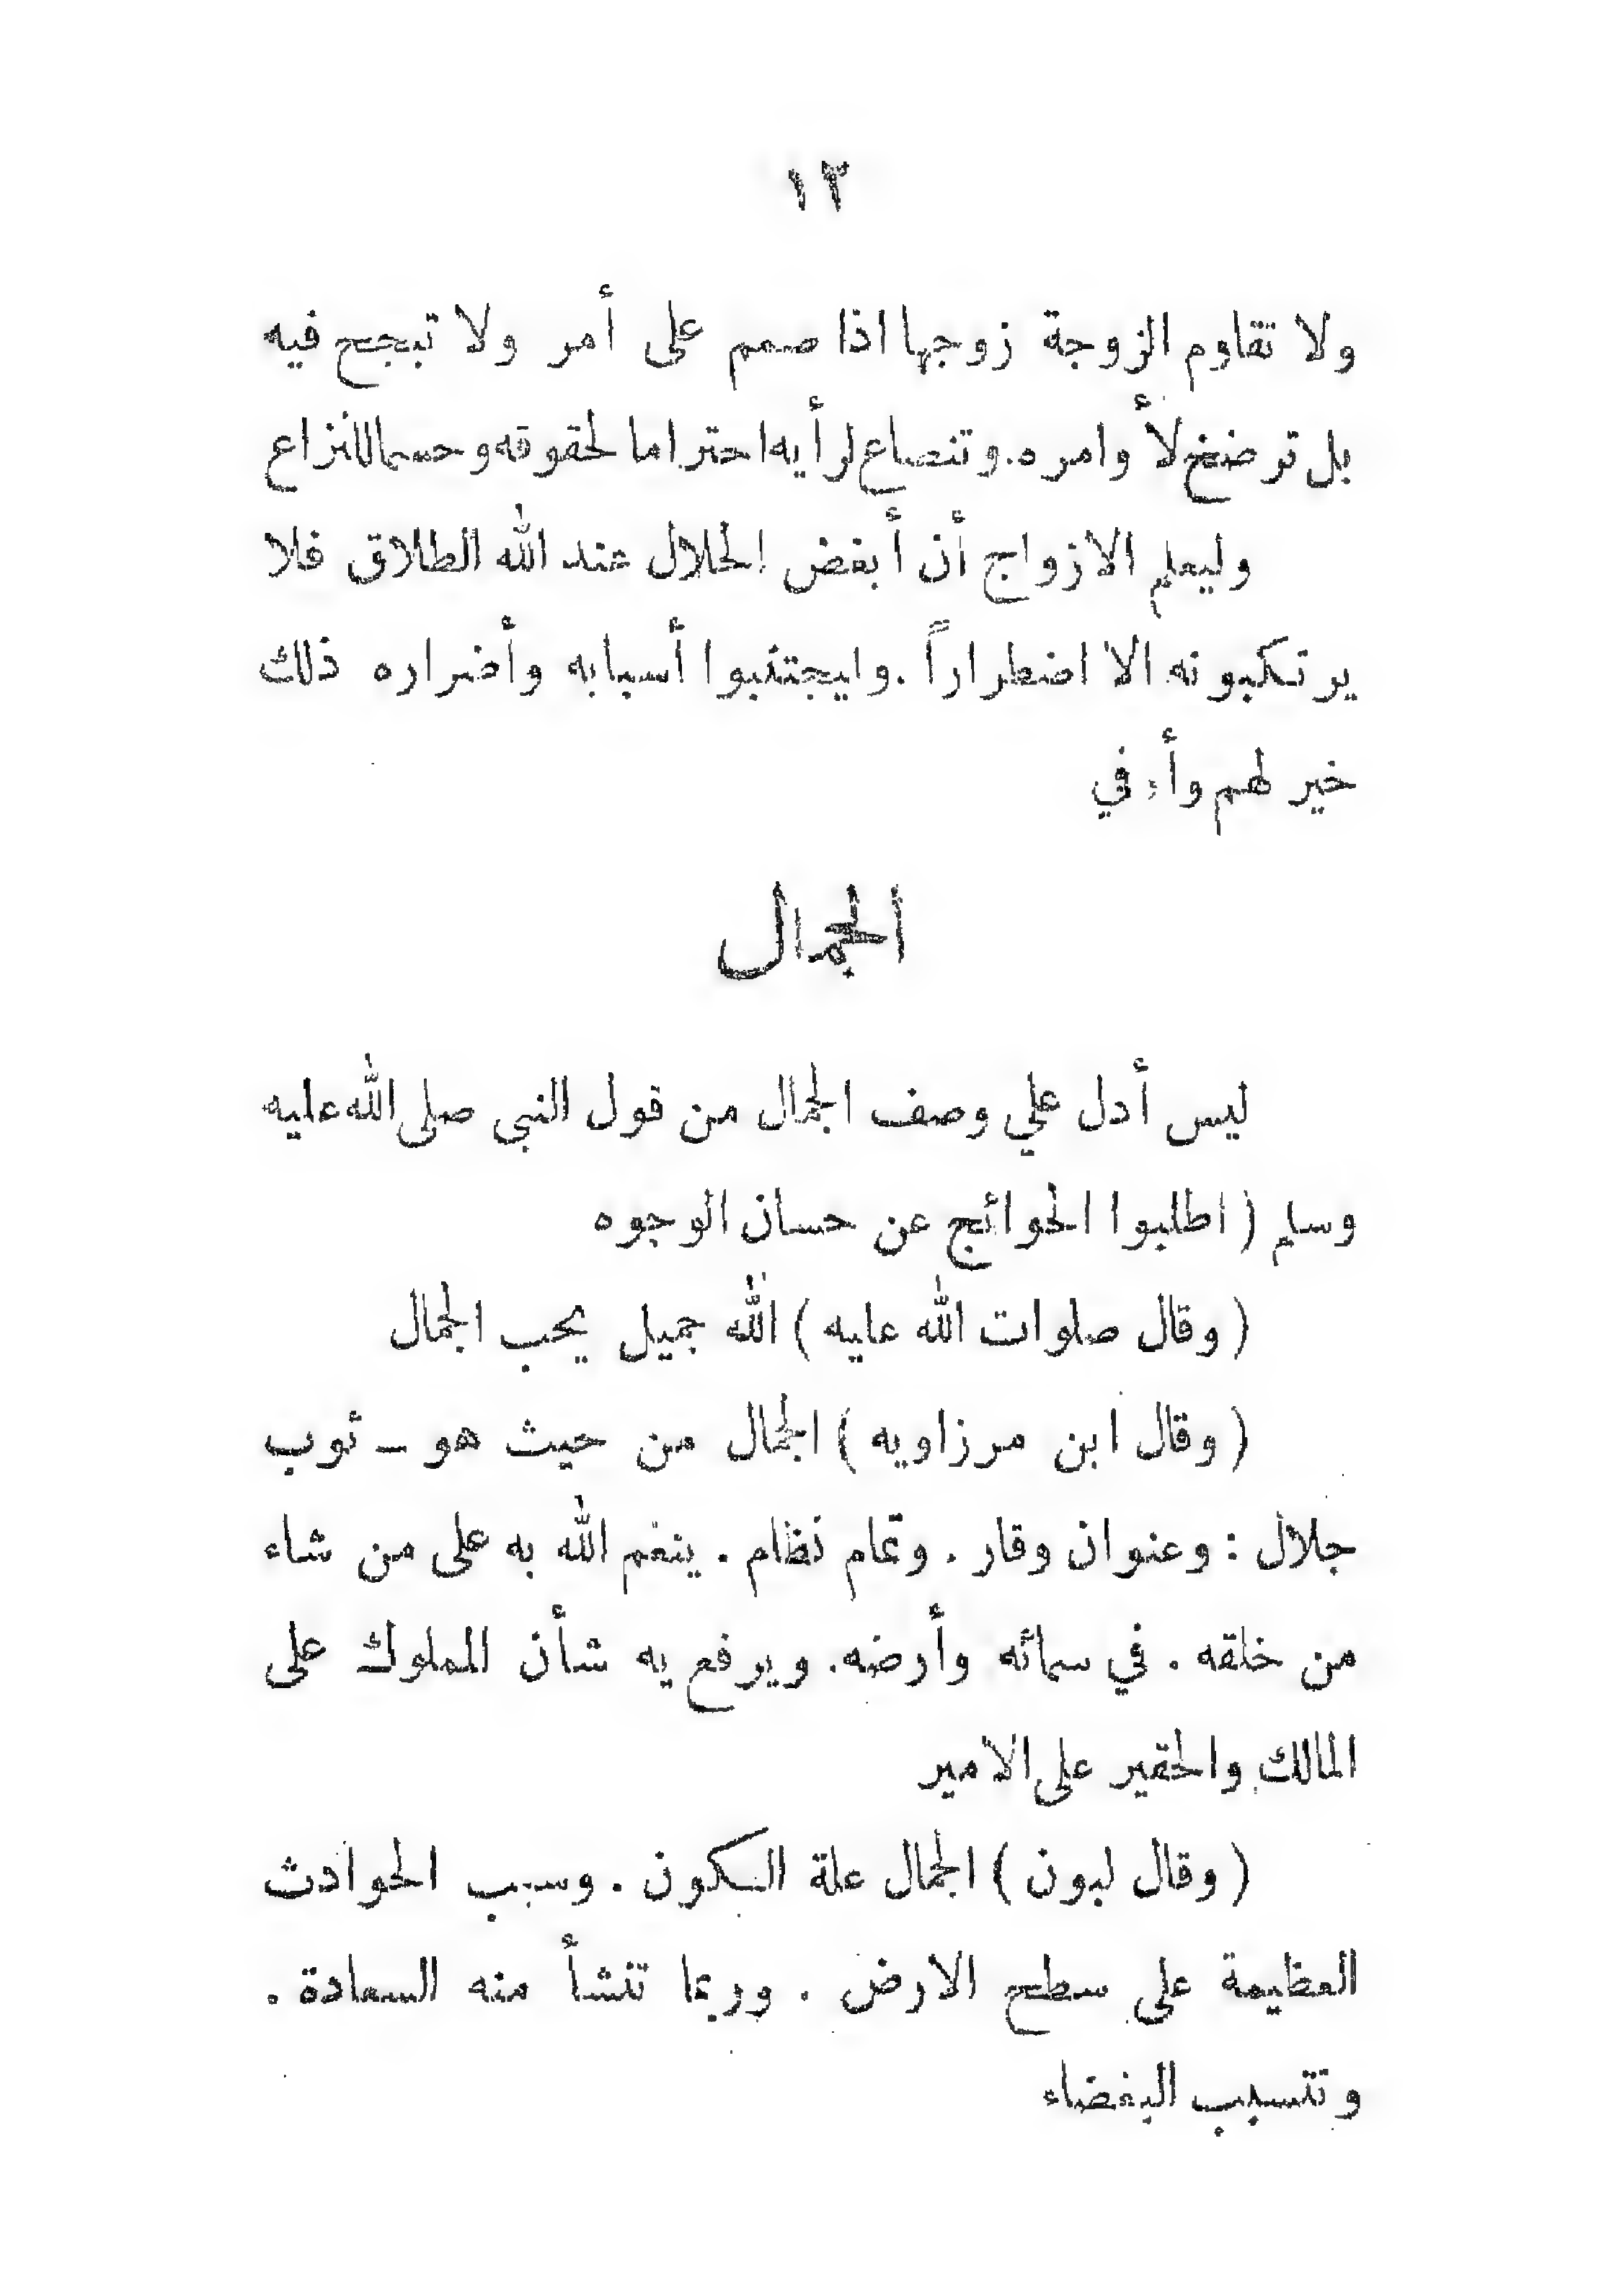 ١٣
ولا تقاوم الزوجة زوجها اذا صمم على أمر ولا تبجح فيه
بل ترضخ لأوامره. وتنصاع لرأيه احتراما لحقوقه وحسما للنزاع
وليعلم الازواج أن أبغض الحلال عند الله الطلاق فلا
يرتكبونه الا اضطراراً . وليجتنبوا أسبابه وأضراره ذلك
خير لهم
الجمال
ليس أدل علي وصف الجمال من قول النبي صلى الله عليه
وسلم ( اطلبوا الحوائج عن حسان الوجوه
( وقال صلوات الله عليه ) الله جميل يحب الجمال
( وقال ابن مرزاويه ) الجمال من حيث هو – ثوب
جلال : وعنوان وقار . وتمام نظام . ينعم الله به على من شاء
من خلقه . في سمائه وأرضه. ويرفع به شأن المملوك على
المالك والحقير على الامير
( وقال لبون ) الجمال علة الكون . وسبب الحوادث
العظيمة على سطح الارض . وربما تنشأ منه السعادة .
وتتسبب البغضاء